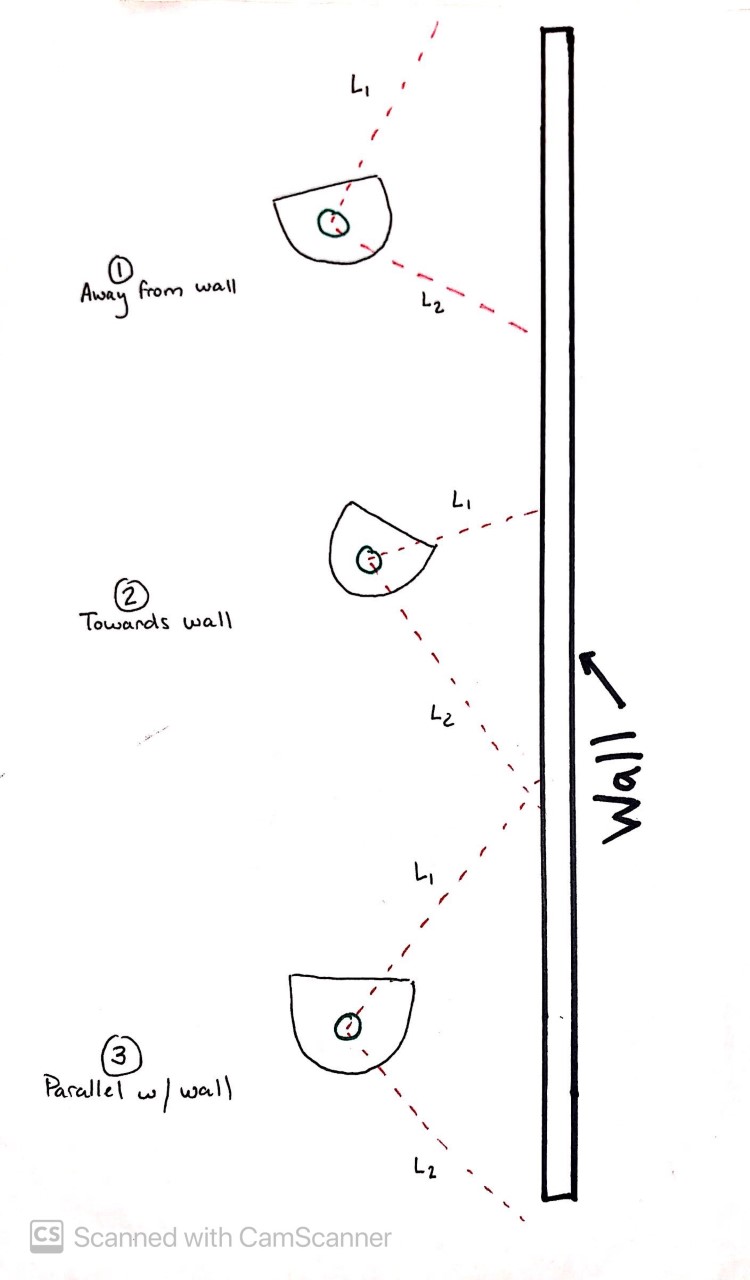 L1
1
Away from wall
L2
L1
2
Towards wall
L2
Wall
L1
3
Parallel w/ wall
L2
CS Scanned with CamScanner